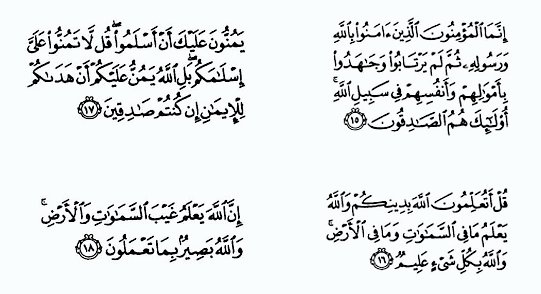 إِنَّمَا ٱلْمُؤْمِنُونَ ٱلَّذِينَ ءَامَنُوا۟ بِٱللَّهِ
وَرَسُولِهِۦ ثُمَّ لَمْ يَرْتَابُوا۟ وَجَٰهَدُوا۟
بِأَمْوَٰلِهِمْ وَأَنفُسِهِمْ فِى سَبِيلِ ٱللَّهِ ۚ
أُو۟لَٰٓئِكَ هُمُ ٱلصَّٰدِقُونَ ١٥
قُلْ أَتُعَلِّمُونَ ٱللَّهَ بِدِينِكُمْ وَٱللَّهُ
يَعْلَمُ مَا فِى ٱلسَّمَٰوَٰتِ وَمَا فِى ٱلْأَرْضِ ۚ
وَٱللَّهُ بِكُلِّ شَىْءٍ عَلِيمٌ ١٦
يَمُنُّونَ عَلَيْكَ أَنْ أَسْلَمُوا۟ ۖ قُل لَّا تَمُنُّوا۟ عَلَىَّ
إِسْلَٰمَكُم ۖ بَلِ ٱللَّهُ يَمُنُّ عَلَيْكُمْ أَنْ هَدَىٰكُمْ
لِلْإِيمَٰنِ إِن كُنتُمْ صَٰدِقِينَ ١٧
إِنَّ ٱللَّهَ يَعْلَمُ غَيْبَ ٱلسَّمَٰوَٰتِ وَٱلْأَرْضِ ۚ
وَٱللَّهُ بَصِيرٌۢ بِمَا تَعْمَلُونَ ١٨